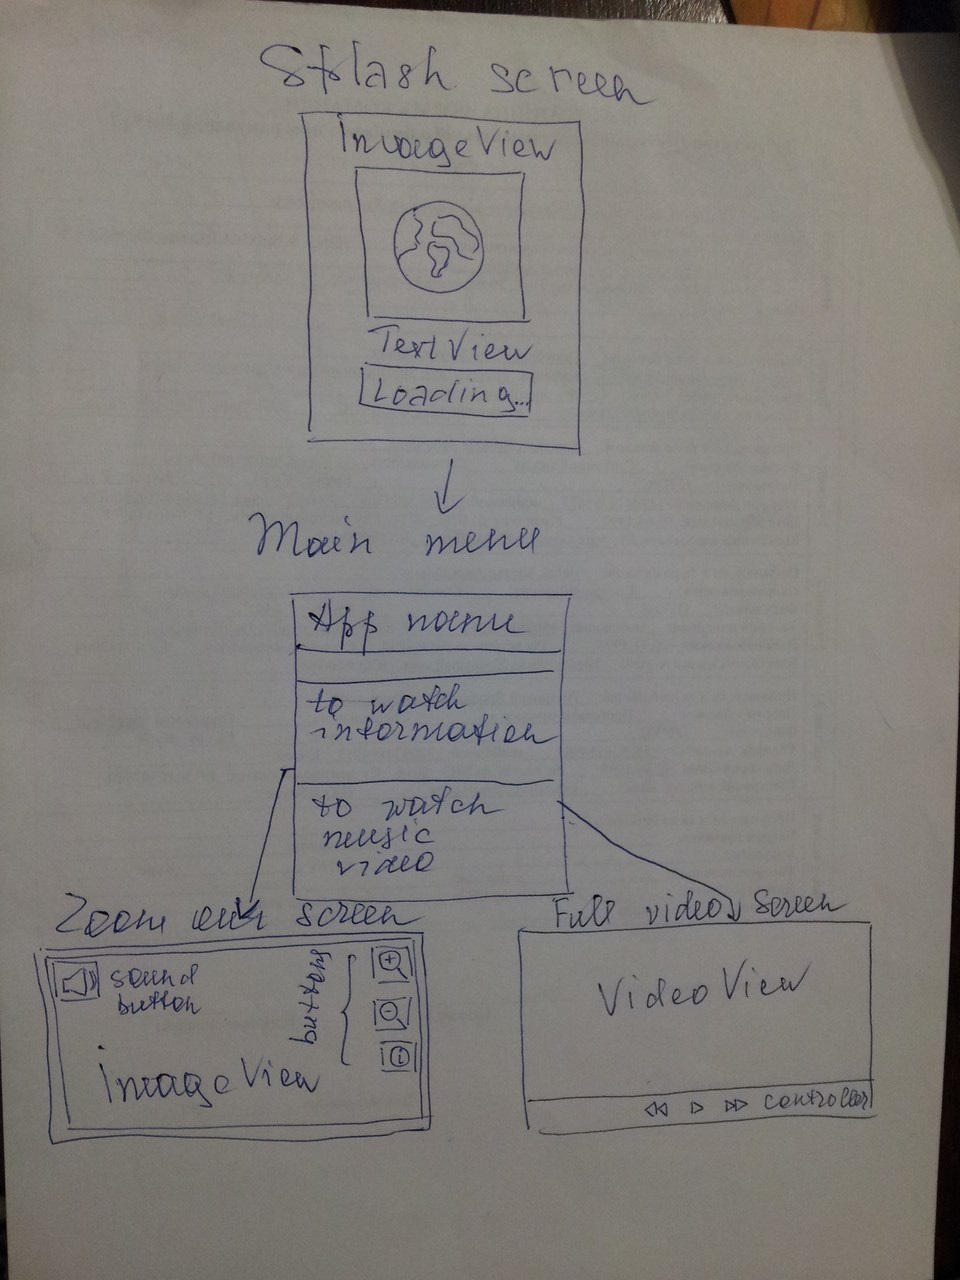 Splash screen
ImageView
TextView
Loading...
Main menu
App name
to watch
information
to watch
music
video
Zoom screen
Full video screen
sound
button
buttons
ImageView
VideoView
controller